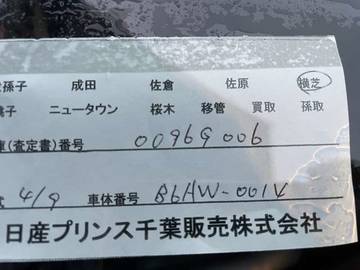 孫子 成田 佐倉 佐原 横芝
子 ニュータウン 桜木 移管 買取 孫取
(査定書)番号 0096G006
4/9 車体番号 B6HW-001V
日産プリンス千葉販売株式会社